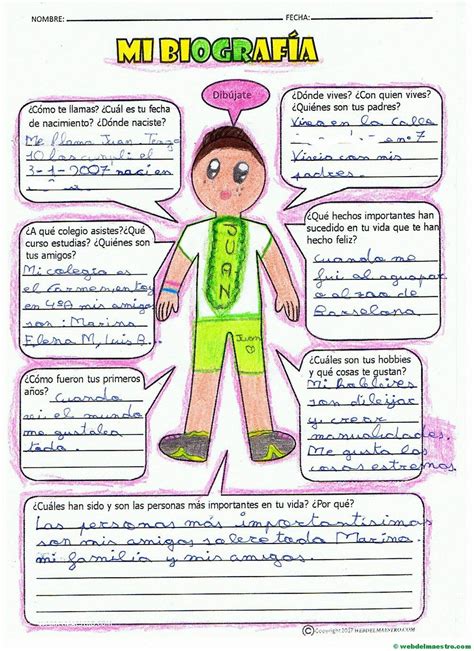 NOMBRE: FECHA:
MI BIOGRAFÍA
Dibújate
¿Cómo te llamas? ¿Cuál es tu fecha
de nacimiento? ¿Dónde naciste?
Me llama Juan. Tengo
10 los cumplí el
3-1-2007 nací en
¿Dónde vives? ¿Con quien vives?
¿Quiénes son tus padres?
Vivo en la calle
nº7
Vivo con mis
padres.
¿A qué colegio asistes?¿Qué
curso estudias? ¿Quiénes son
tus amigos?
Mi colegio es
el Carmen
en 4ºA mis amigos
son: Marina
Elena M, Luis A..
¿Qué hechos importantes han
sucedido en tu vida que te han
hecho feliz?
Cuando me
fui al
o al zoo de
Barcelona
JUAN
Juan
¿Cómo fueron tus primeros
años?
Cuando
el mundo
me gustaba
toda.
¿Cuáles son tus hobbies
y qué cosas te gustan?
Mi hobbies
son dibujar
y crear
manualidades.
Me gusta las
cosas extremas
¿Cuáles han sido y son las personas más importantes en tu vida? ¿Por qué?
Las personas más importantísimas
son mis amigos sobre toda Marina
mi familia y mis amigos.
©Copyright 2017 WEBDELMAESTRO.COM
© webdelmaestro.com